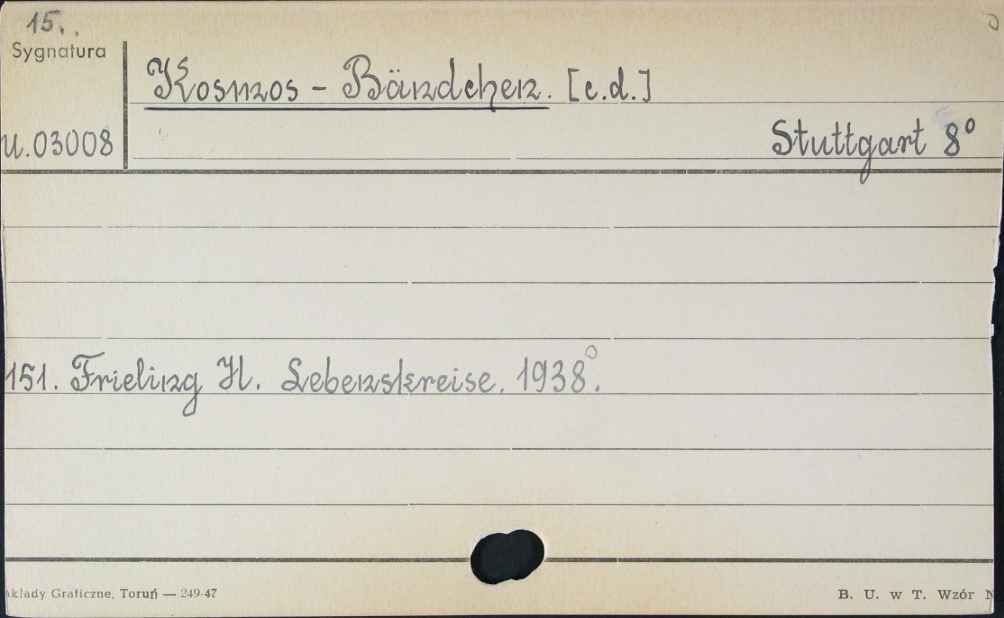 15..
Sygnatura
Kosmos - Bändchen. [c.d.]
U.03008
Stuttgart 8°
151. Frieling H. Lebenskreise. 1938°.
akłady Graficzne, Toruń — 249-47
B. U. w T. Wzór N